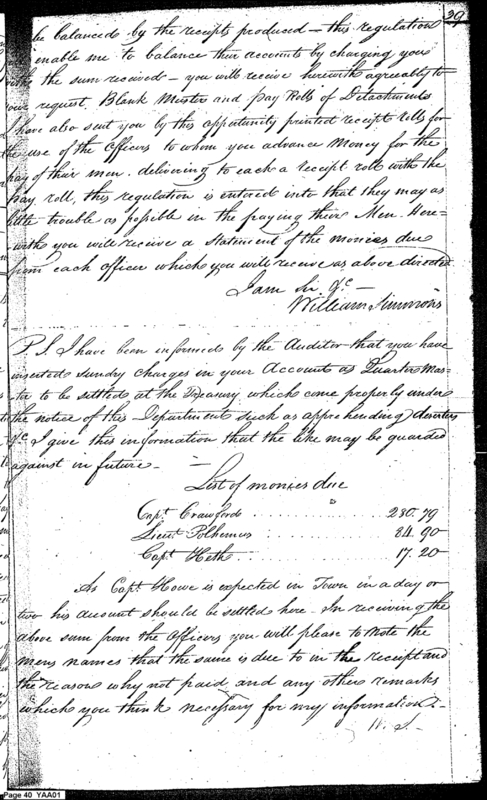 29
be balanced by the receipts produced — this regulation
enable me to balance their accounts by charging you
with the sum received — you will receive herewith agreeably to
your request, Blank Muster and pay Rolls of Detachments
I have also sent you by this opportunity printed receipt rolls for
the use of the Officers to whom you advance Money for the
pay of their men. delivering to each a receipt roll with the
pay roll, this regulation is entered into that they may as
little trouble as possible in the paying their Men. Here=
with you will receive a Statement of the monies due
from each officer which you will receive as above directed
I am Sir &c —
William Simmons
P.S. I have been informed by the Auditor that you have
inserted sundry charges in your Accounts as Quarter Mas-
ter to be settled at the Treasury which come properly under
the notice of this Department such as apprehending deserters
&c I give this information that the like may be guarded
against in future —
List of monies due
Capt. Crawford . . . . . . . . . . 280.79
Lieut Polhemus . . . . . . . . . . 84.90
Capt Heth . . . . . . . . . . 17.20
As Capt. Howe is expected in Town in a day or
two his account should be settled here — In receiving the
above sum from the Officers you will please to note the
mens names that the same is due to in the receipt and
the reasons why not paid and any other remarks
which you think necessary for my information —
W. S —
Page 40 YAA01